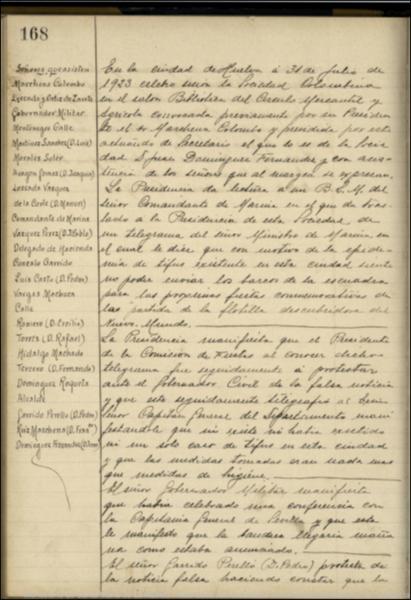 168
Señores que asisten
Marchena Colombo
Gobernador Militar
Montenegro Calle
Martinez Sanchez (D. Luis)
Morales Soler
Lossada Vazquez
de la Corte (D. Manuel)
Comandante de Marina
Vazquez Perez (D. Pablo)
Delegado de Hacienda
Gonzalo Garrido
Luis Casto (D. Pedro)
Vargas Machuca
Calle
Romero (D. Cecilio)
Torres (D. Rafael)
Hidalgo Machado
Terrero (D. Fernando)
Dominguez Roqueta
Alcalde
Garrido Perello (D. Pedro)
Ruiz Marchena (D. Franco)
Dominguez Fernandez
En la ciudad de Huelva á 31 de Julio de
1923 celebró sesion la Sociedad Colombina
en el salon Biblioteca del Circulo Mercantil y
Agricola convocada previamente por su Presiden
te el Sr Marchena Colombo y presidida por este
actuando de Secretario el que lo es de la Socie
dad Sr Juan Dominguez Fernandez y con asis
tencia de los señores que al margen se expresan.
La Presidencia da lectura a un B.L.M. del
señor Comandante de Marina en el que da tras
lado a la Presidencia de esta Sociedad de
un telegrama del señor Ministro de Marina en
el cual le dice que con motivo de la epide
mia de tifus existente en esta ciudad siente
no poder enviar los barcos de la escuadra
para las proximas fiestas conmemorativas de
la partida de la flotilla descubridora del
Nuevo Mundo.
La Presidencia manifiesta que el Presidente
de la Comision de Fiestas al conocer dicho
telegrama fue seguidamente á protestar
ante el Gobernador Civil de la falsa noticia
y que este seguidamente telegrafió al
señor Capitan General del Departamento mani
festandole que ni existe ni habia existido
ni un solo caso de tifus en esta ciudad
y que las medidas tomadas eran nada mas
que medidas de higiene.
El señor Gobernador Militar manifiesta
que habia celebrado una conferencia con
la Capitania General de Sevilla y que esta
le manifestó que la bandera llegaria maña
na como estaba anunciado.
El señor Garrido Perello (D. Pedro) protesta de
la noticia falsa haciendo constar que la